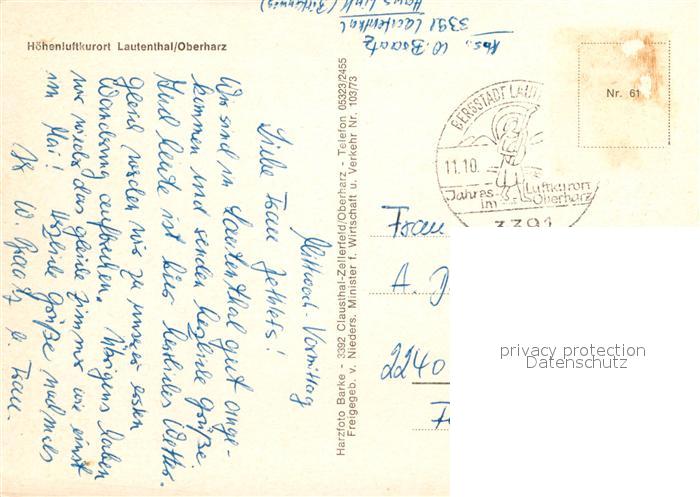 Höhenluftkurort Lautenthal/Oberharz
Mittwoch-Vormittag
Liebe Frau Jethefs!
Wir sind in Lautenthal gut ange-
kommen und senden herzliche Grüße.
Und heute ist hier herrliches Wetter.
Gleich werden wir zu unserer ersten
Wanderung aufbrechen. Übrigens haben
wir wieder das gleiche Zimmer wie einst
im Mai! Herzliche Grüße nochmals
W. Braatz u. Frau.
Harzfoto Barke - 3392 Clausthal-Zellerfeld/Oberharz - Telefon 05323/2455
Freigegeb. v. Nieders. Minister f. Wirtschaft u. Verkehr Nr. 103/73
Abs. W. Braatz
3391 Lautenthal
Haus
Nr. 61
BERGSTADT LAUT
11.10.
Jahres- Luftkurort
im Oberharz
3391
Frau
A.
2240
privacy protection
Datenschutz